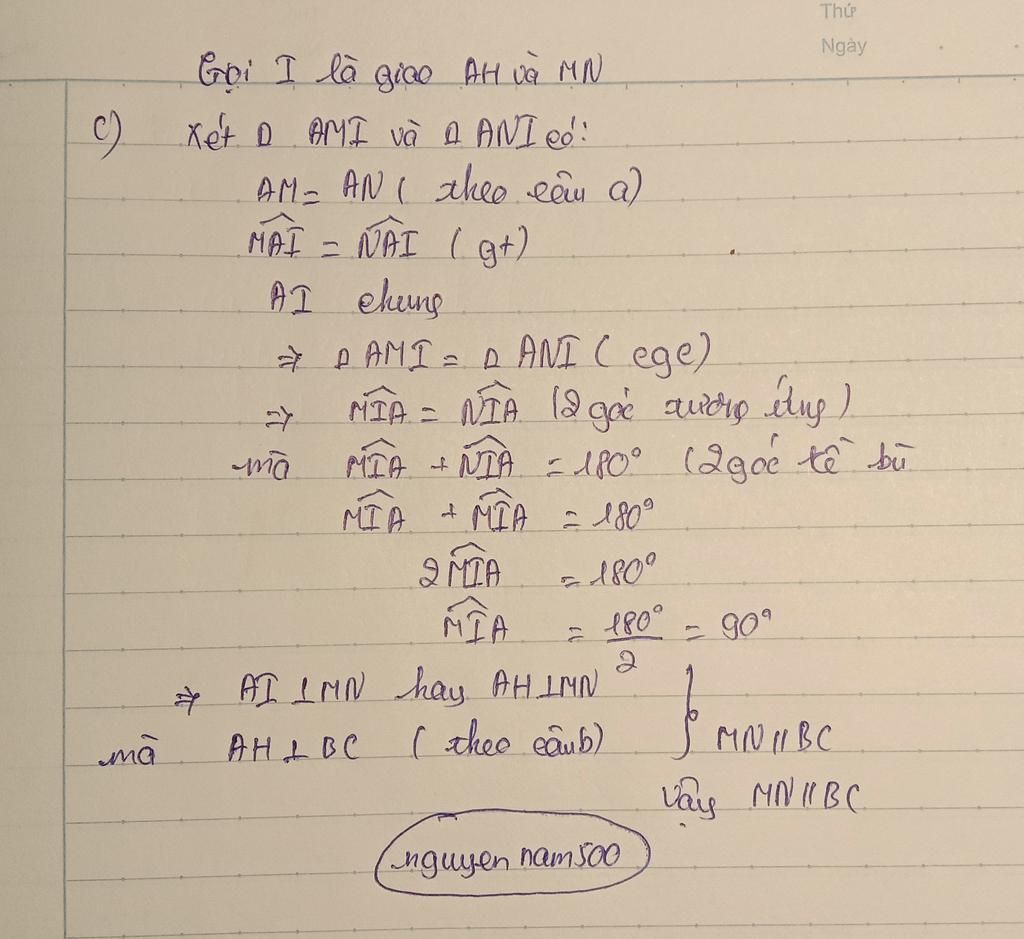 Thứ
Ngày
Gọi I là giao AH và MN
c) Xét Δ AMI và Δ ANI có:
AM = AN ( theo câu a)
\widehat{MAI} = \widehat{NAI} ( gt)
AI chung
⇒ Δ AMI = Δ ANI ( cgc)
⇒ \widehat{MIA} = \widehat{NIA} (2 góc tương ứng)
mà \widehat{MIA} + \widehat{NIA} = 180° (2 góc kề bù
\widehat{MIA} + \widehat{MIA} = 180°
2\widehat{MIA} = 180°
\widehat{MIA} = \frac{180°}{2} = 90°
⇒ AI ⊥ MN hay AH ⊥ MN
mà AH ⊥ BC ( theo câu b) } MN // BC
Vậy MN // BC
nguyen nam500